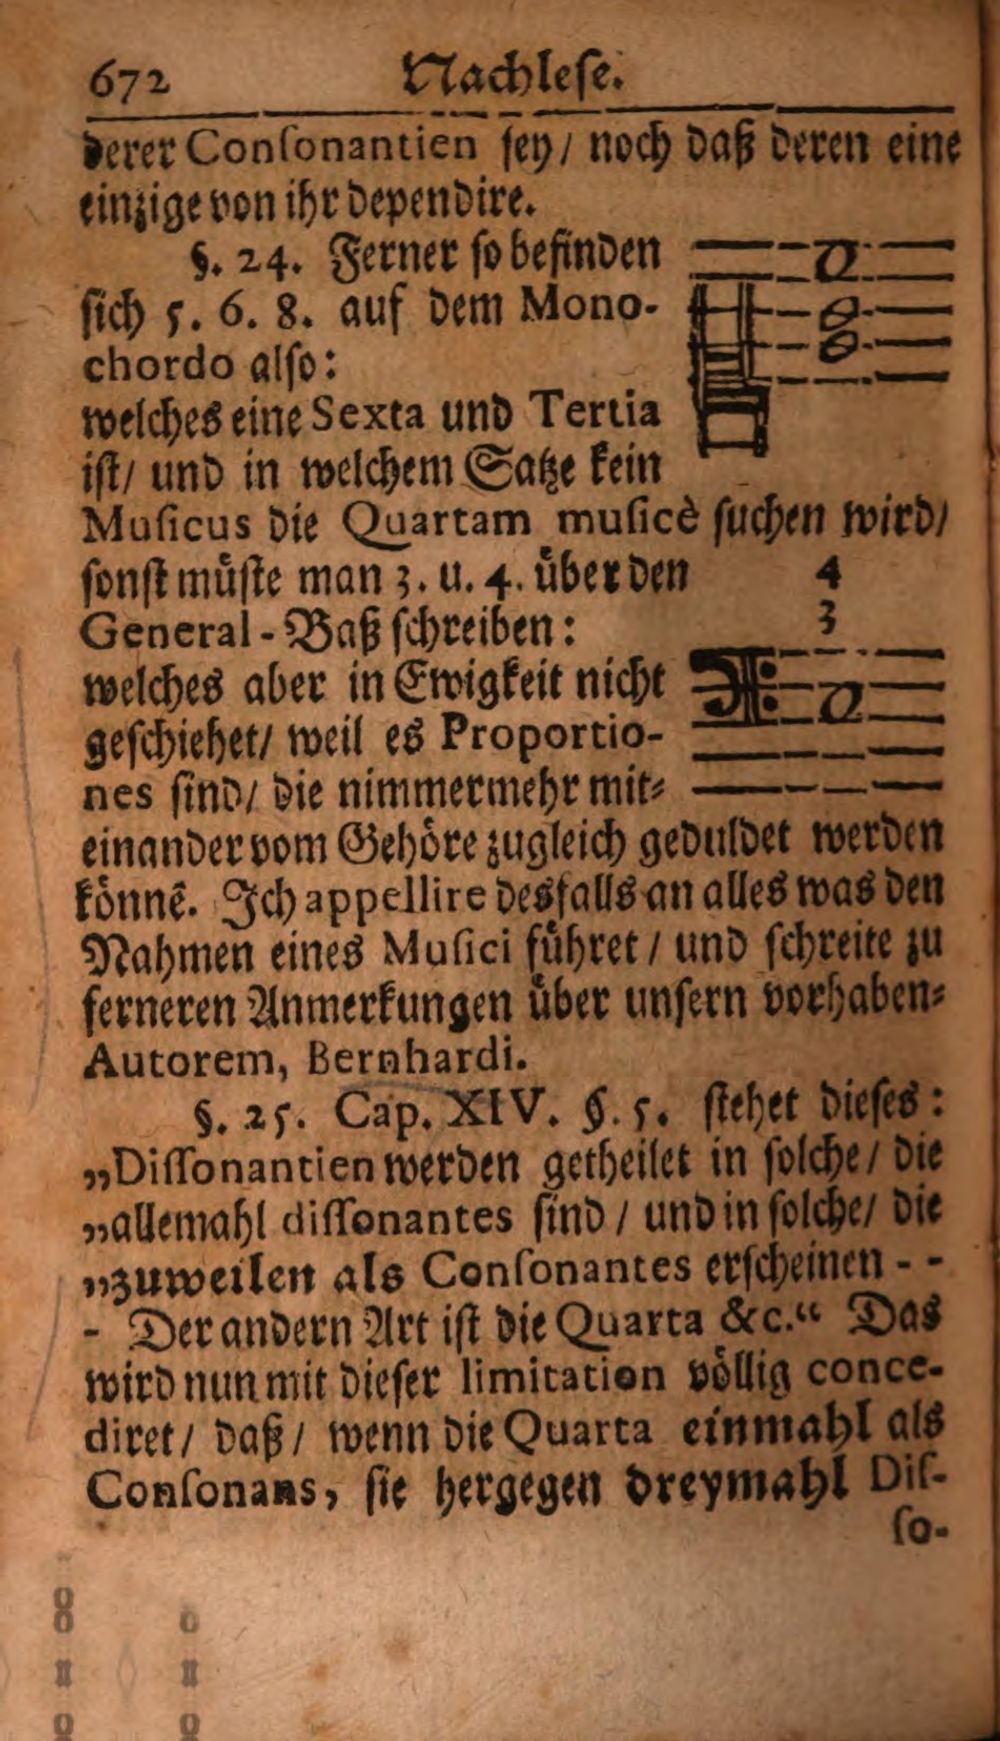 672 Nachlese.
derer Conſonantien ſey/ noch daß deren eine
einzige von ihr dependire.
§. 24. Ferner ſo befinden
ſich 5. 6. 8. auf dem Mono-
chordo alſo:
welches eine Sexta und Tertia
iſt/ und in welchem Satze kein
Muſicus die Quartam muſicè ſuchen wird/
ſonſt müſte man 3. u. 4. über den
4
3
General-Baß ſchreiben:
welches aber in Ewigkeit nicht
geſchiehet/ weil es Proportio-
nes ſind/ die nimmermehr mit⸗
einander vom Gehöre zugleich geduldet werden
könnē. Ich appellire desfalls an alles was den
Nahmen eines Muſici führet / und ſchreite zu
ferneren Anmerkungen über unſern vorhaben⸗
Autorem, Bernhardi.
§. 25. Cap. XIV. §. 5. ſtehet dieſes:
„Diſſonantien werden getheilet in ſolche/ die
„allemahl diſſonantes ſind / und in ſolche/ die
„zuweilen als Conſonantes erſcheinen - -
- Der andern Art iſt die Quarta &c.“ Das
wird nun mit dieſer limitation völlig conce-
diret/ daß/ wenn die Quarta einmahl als
Conſonans, ſie hergegen dreymahl Diſ-
ſo-